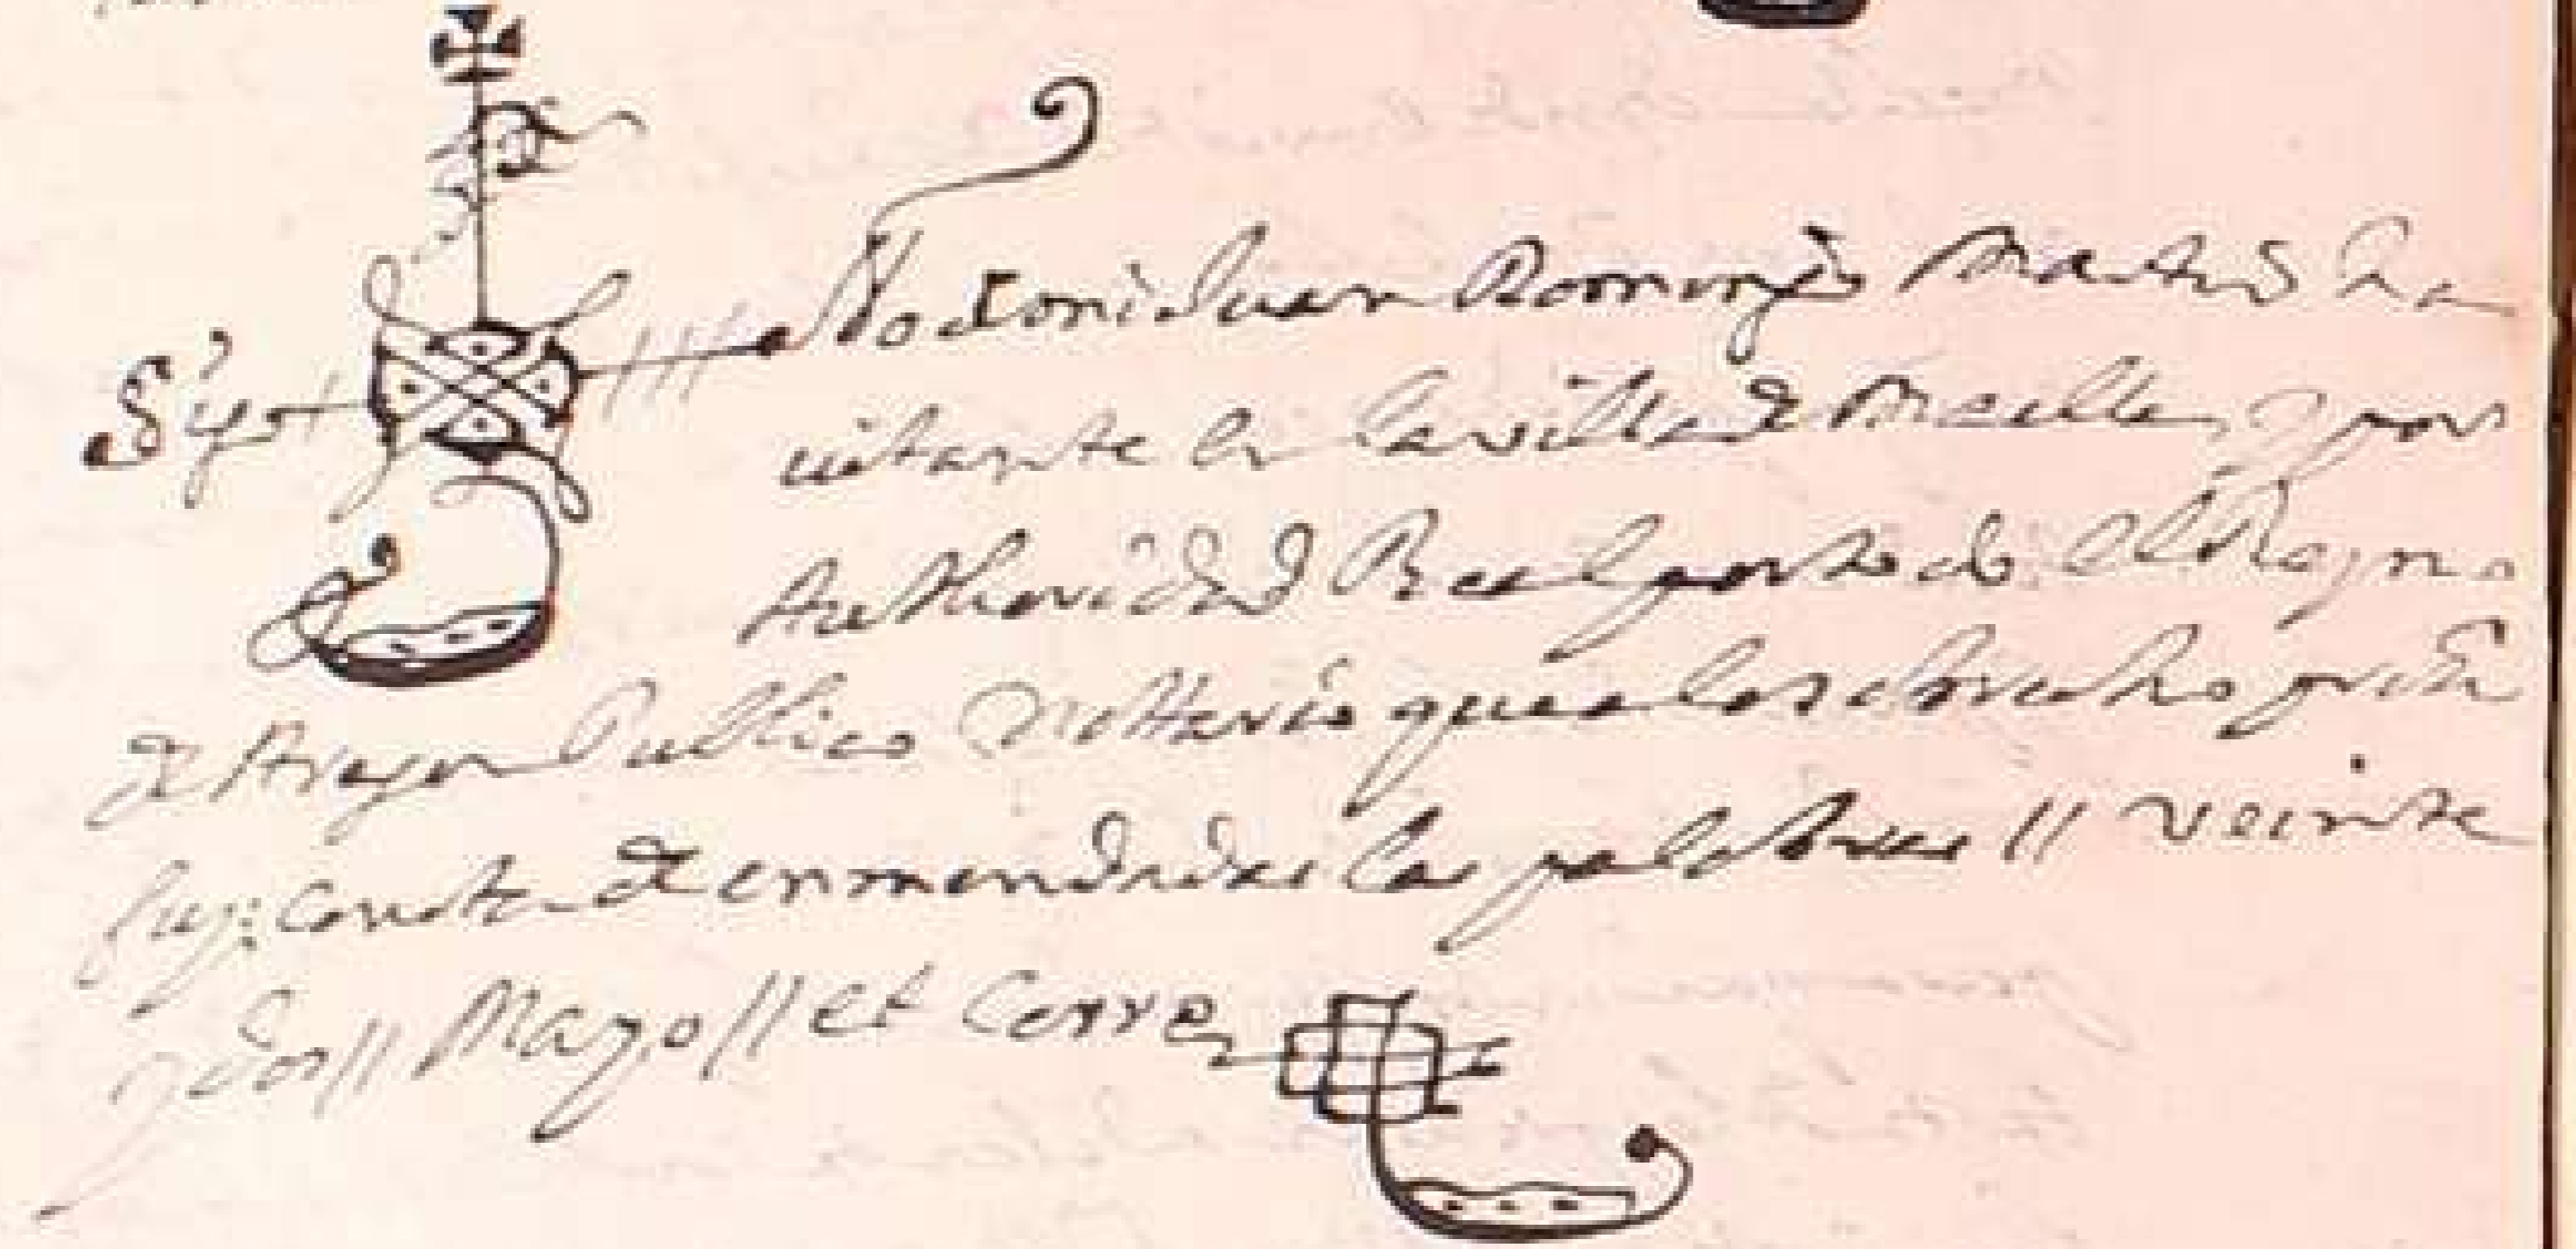 Sig+no de mi Juan Domingo Mathias ha
uitante en la villa de Maella y por
Authoridad Real por todo el Reyno
de Aragon Publico Nottario que a lo sobre dicho presente
fuy: consta de enmendadas las palabras // veinte
y dos // Mayo // et Cerre